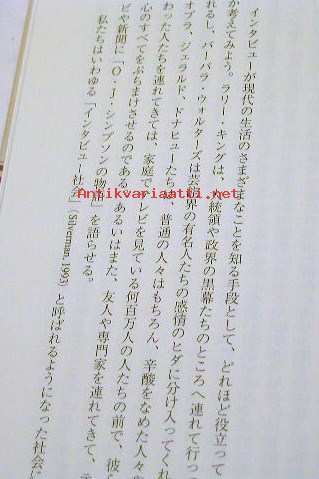 インタビューが現代の生活のさまざまなことを知る手段として、どれほど役立って
か考えてみよう。ラリー・キングは、
統領や政界の黒幕たちのところへ連れて行っ
れるし、バーバラ・ウォルターズは芸能界の有名人たちの感情のヒダに分け入ってくれ
オプラ、ジェラルド、ドナヒューたちは、普通の人々はもちろん、辛酸をなめた人々
わった人たちを連れてきては、家庭でテレビを見ている何百万人の人たちの前で、彼
心のすべてをぶちまけさせるのである。あるいはまた、友人や専門家を連れてきて、
ビや新聞に「O・J・シンプソンの物語」を語らせる。
私たちはいわゆる「インタビュー社会」(Silverman, 1993) と呼ばれるようになった社会に
Antikvariaatti.net